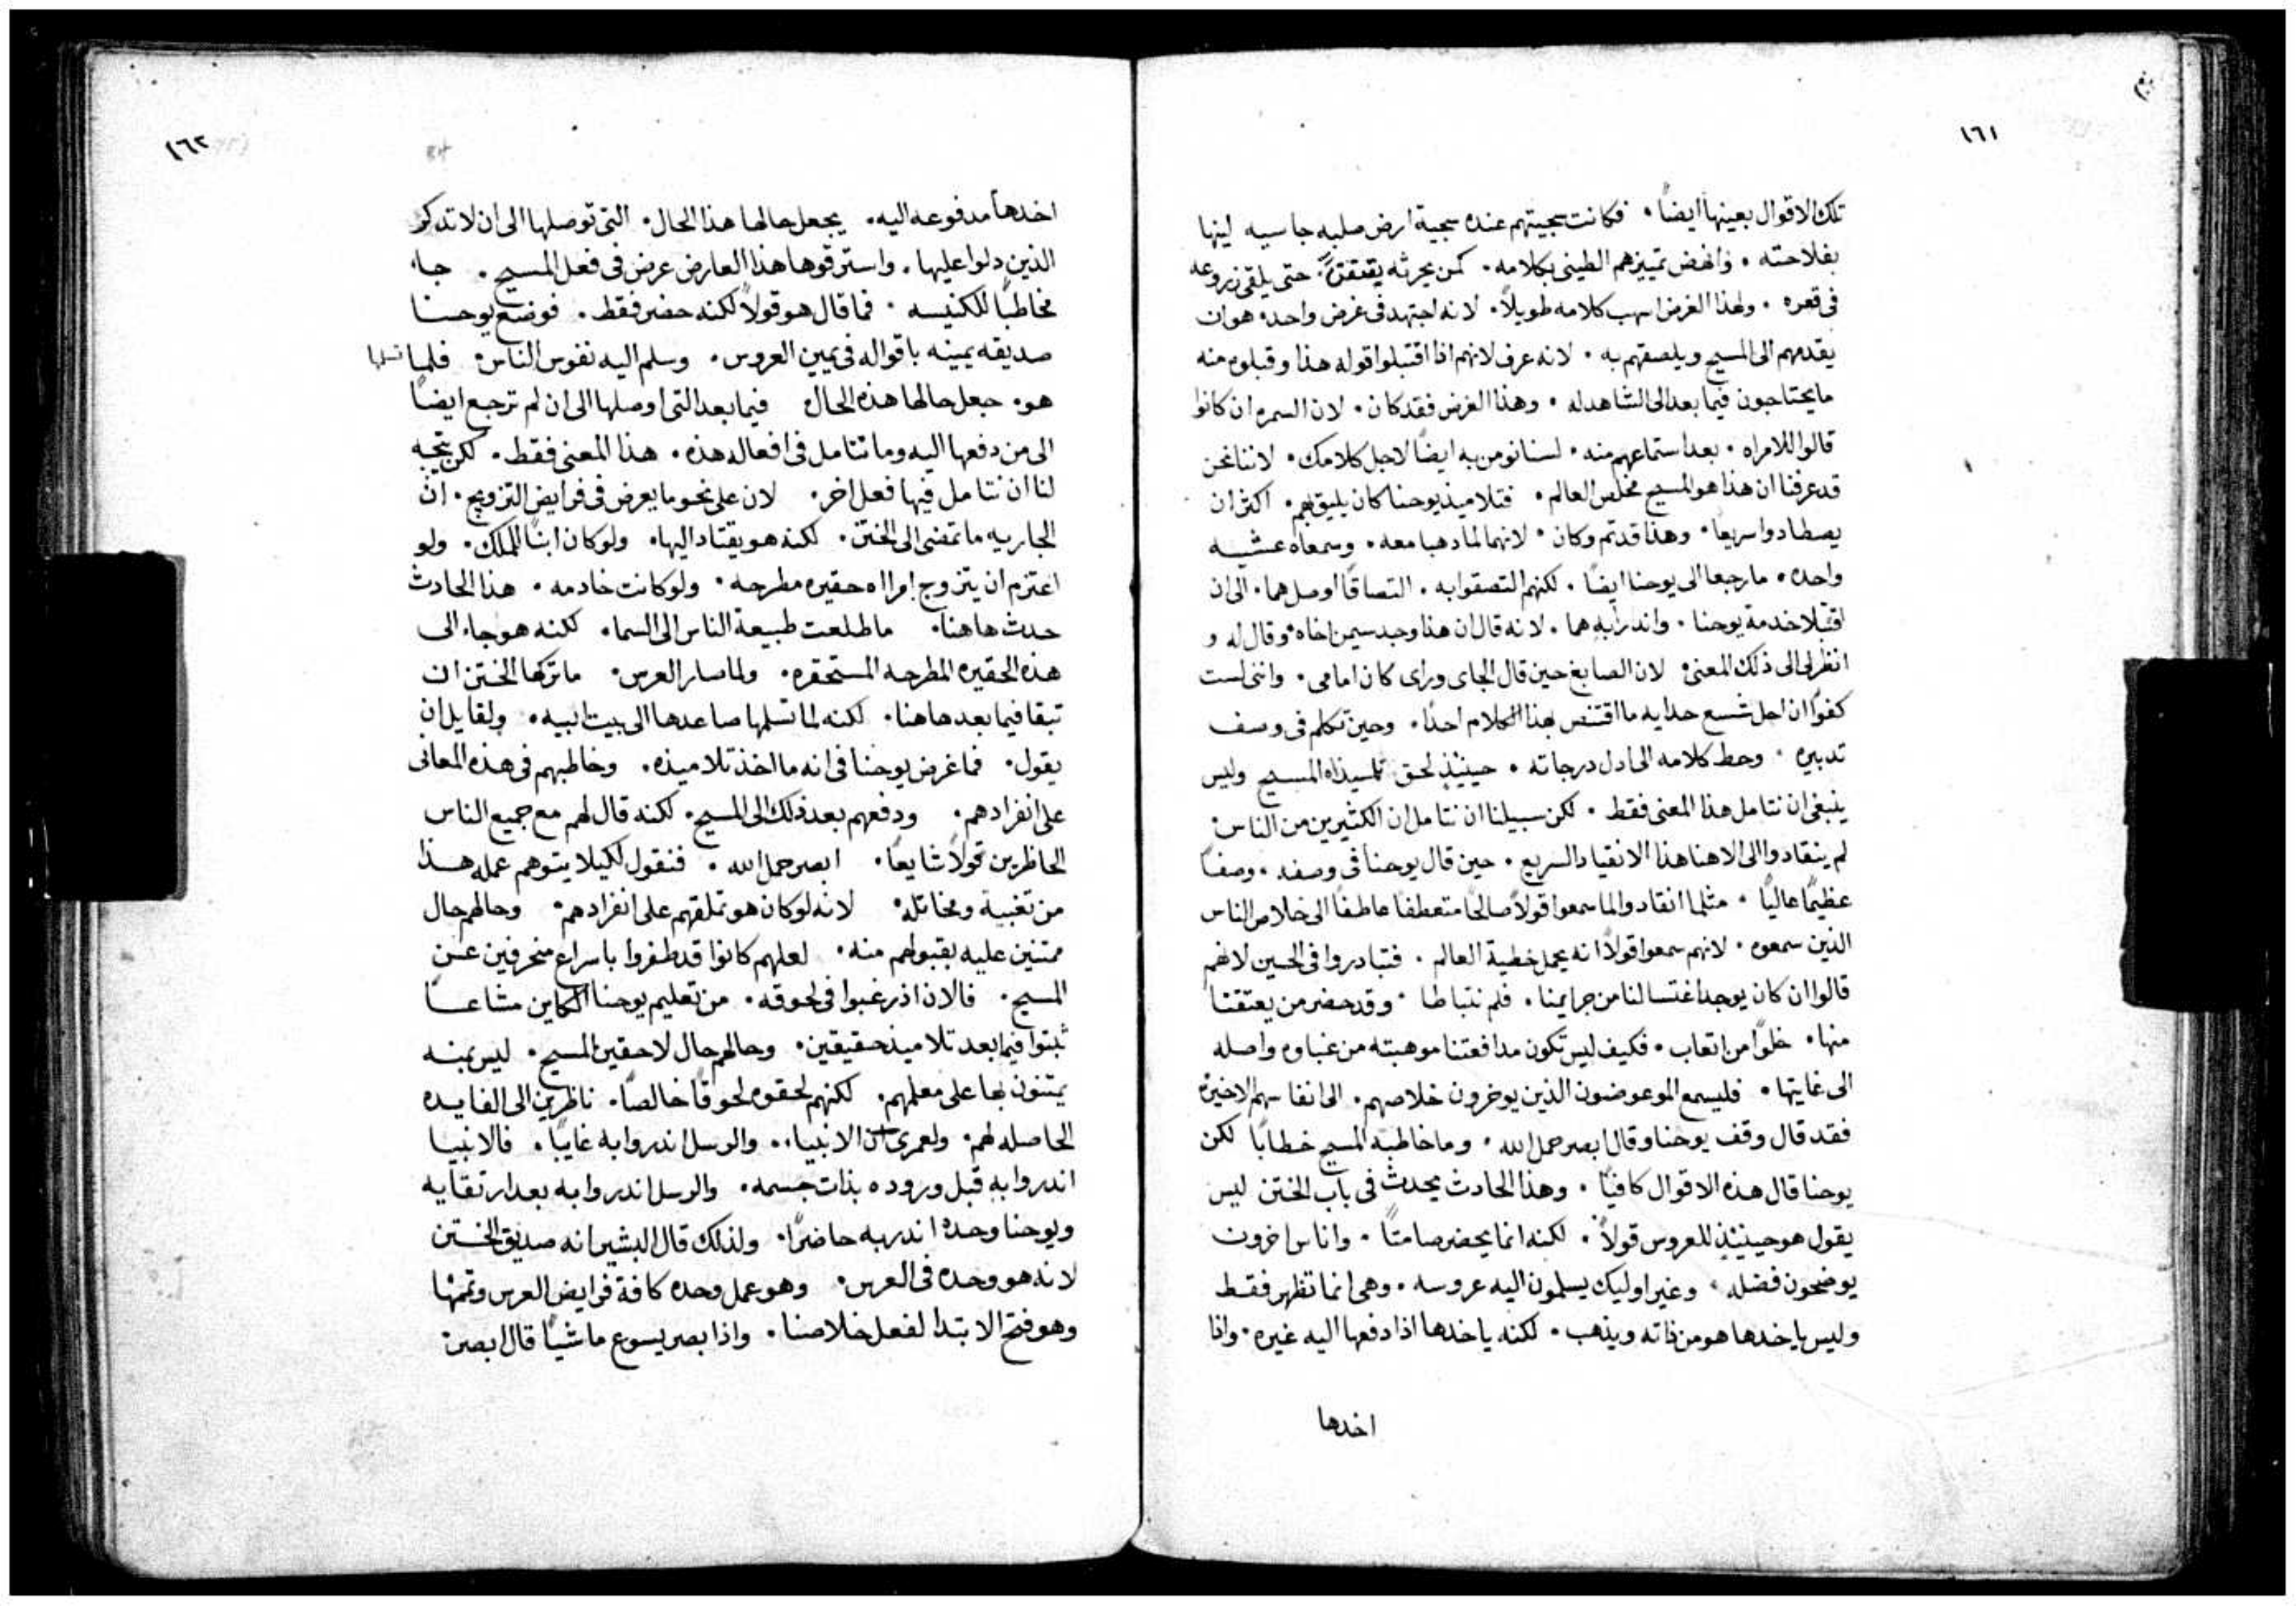 ١٦١
تلك الاقوال بعينها ايضاً . فكانت سجيتهم عنده سجية ارض صلبه جاسيه لينها
بفلاحته . وانهض تمييزهم الطيني بكلامه . كمن يحرثه حتى يلقي زروعه
في قعره . ولهذا الغرض اسهب كلامه طويلاً . لانه اجتهد في غرض واحد هو ان
يقدمهم الى المسيح ويلصقهم به . لانه عرف لانهم اذا اقتبلوا قوله هذا وقبلوه منه
ما يحتاجون فيما بعد الى الشاهد له . وهذا الغرض فقد كان . لان السمره ان كانوا
قالوا للامراه . بعد استماعهم منه . لسنا نومن به ايضاً لاجل كلامك . لاننا نحن
قد عرفنا ان هذا هو المسيح مخلص العالم . فتلاميذ يوحنا كان يليق بهم . اكثر ان
يصطادوا سريعاً . وهذا قد تم وكان . لانهما لما ذهبا معه . وسمعاه عشيه
واحده . ما رجعا الى يوحنا ايضاً . لكنهم التصقوا به . التصاقاً اوصلهما . الى ان
اقتبلا خدمة يوحنا . واندرا به هما . لانه قال ان هذا وجد سيمن اخاه وقال له و
انظر لي الى ذلك المعنى . لان الصابغ حين قال الجاي وراي كان امامي . وانني لست
كفواً ان احل شسع حدايه ما اقتنص بهذا الكلام احداً . وحين تكلم في وصف
تدبيره . وحط كلامه الى ادل درجاته . حينيذٍ لحق تلميذاه المسيح وليس
ينبغي ان نتامل هذا المعنى فقط . لكن سبيلنا ان نتامل ان الكثيرين من الناس
لم ينقادوا الى الاهنا هذا الانقياد السريع . حين قال يوحنا في وصفه . وصفاً
عظيماً عالياً . مثلما انقادوا لما سمعوا قولاً صالحاً متعطفاً عاطفاً الى خلاص الناس
الذين سمعوه . لانهم سمعوا قولاً انه يحمل خطية العالم . فتبادروا في الحين لانهم
قالوا ان كان يوجد اغتسالنا من جرايمنا . فلم نتباطا . وقد حضر من يعتقنا
منها . خلواً من اتعاب . فكيف ليس تكون مدافعتنا موهبته من غباوه واصله
الى غايتها . فليسمع الموعوضون الذين يوخرون خلاصهم . الى انفاسهم الاخيره
فقد قال وقف يوحنا وقال ابصر حمل الله . وما خاطبه المسيح خطاباً لكن
يوحنا قال هذه الاقوال كافياً . وهذا الحادث يحدث في باب الختن ليس
يقول هو حينيذٍ للعروس قولاً . لكنه انما يحضر صامتاً . واناس اخرون
يوضحون فضله . وغير اوليك يسلمون اليه عروسه . وهي انما تظهر فقط
وليس ياخدها هو من ذاته ويذهب . لكنه ياخدها اذا دفعها اليه غيره . واذا
اخدها
١٦٢
اخدها مدفوعه اليه . يجعل حالها هذا الحال . التي توصلها الى ان لا تدكر
الذين دلوا عليها . واسترقوها هذا العارض عرض في فعل المسيح . جاء
مخاطباً للكنيسه . فما قال هو قولاً لكنه حضر فقط . فوضع يوحنا
صديقه يمينه باقواله في يمين العروس . وسلم اليه نفوس الناس . فلما تسلمها
هو . جعل حالها هذه الحال . فيما بعد التي اوصلها الى ان لم ترجع ايضاً
الى من دفعها اليه وما نتامل في افعاله هذه . هذا المعنى فقط . لكن يتجه
لنا ان نتامل فيها فعل اخر . لان على نحو ما يعرض في فرايض التزويج . ان
الجاريه ما تمضي الى الختن . لكنه هو يقتاد اليها . ولو كان ابناً للملك . ولو
اعتزم ان يتزوج امراه حقيره مطرحه . ولو كانت خادمه . هذا الحادث
حدث هاهنا . ما طلعت طبيعة الناس الى السما . لكنه هو جاء الى
هذه الحقيره المطرحه المستحقره . ولما صار العرس . ما تركها الختن ان
تبقا فيما بعد هاهنا . لكنه لما تسلمها صاعدها الى بيت ابيه . ولقايل ان
يقول . فما غرض يوحنا في انه ما اخذ تلاميذه . وخاطبهم في هذه المعاني
على انفرادهم . ودفعهم بعد ذلك الى المسيح . لكنه قال لهم مع جميع الناس
الحاظرين قولاً شايعاً . ابصر حمل الله . فنقول لكيلا يتوهم عمله هذا
من تغبية ومخاتله . لانه لو كان هو تملقهم على انفرادهم . وحالهم حال
ممتنين عليه بقبولهم منه . لعلهم كانوا قد طفروا باسراع منحرفين عن
المسيح . فالان اذ رغبوا في لحوقه . من تعليم يوحنا الكاين مشاعاً
ثبتوا فيما بعد تلاميذ حقيقين . وحالهم حال لاحقين المسيح . ليس بمنه
يمتنون بها على معلمهم . لكنهم لحقوه لحوقاً خالصاً . ناظرين الى الفايده
الحاصله لهم . ولعمري ان الانبياء . والرسل اندروا به غايباً . فالانبيا
اندروا به قبل وروده بذات جسمه . والرسل اندروا به بعد ارتقايه
ويوحنا وحده اندر به حاضراً . ولذلك قال البشير انه صديق الختن
لانه هو وحده في العرس . وهو عمل وحده كافة فرايض العرس وتممها
وهو فتح الابتدا لفعل خلاصنا . واذا بصر يسوع ماشياً قال ابصر